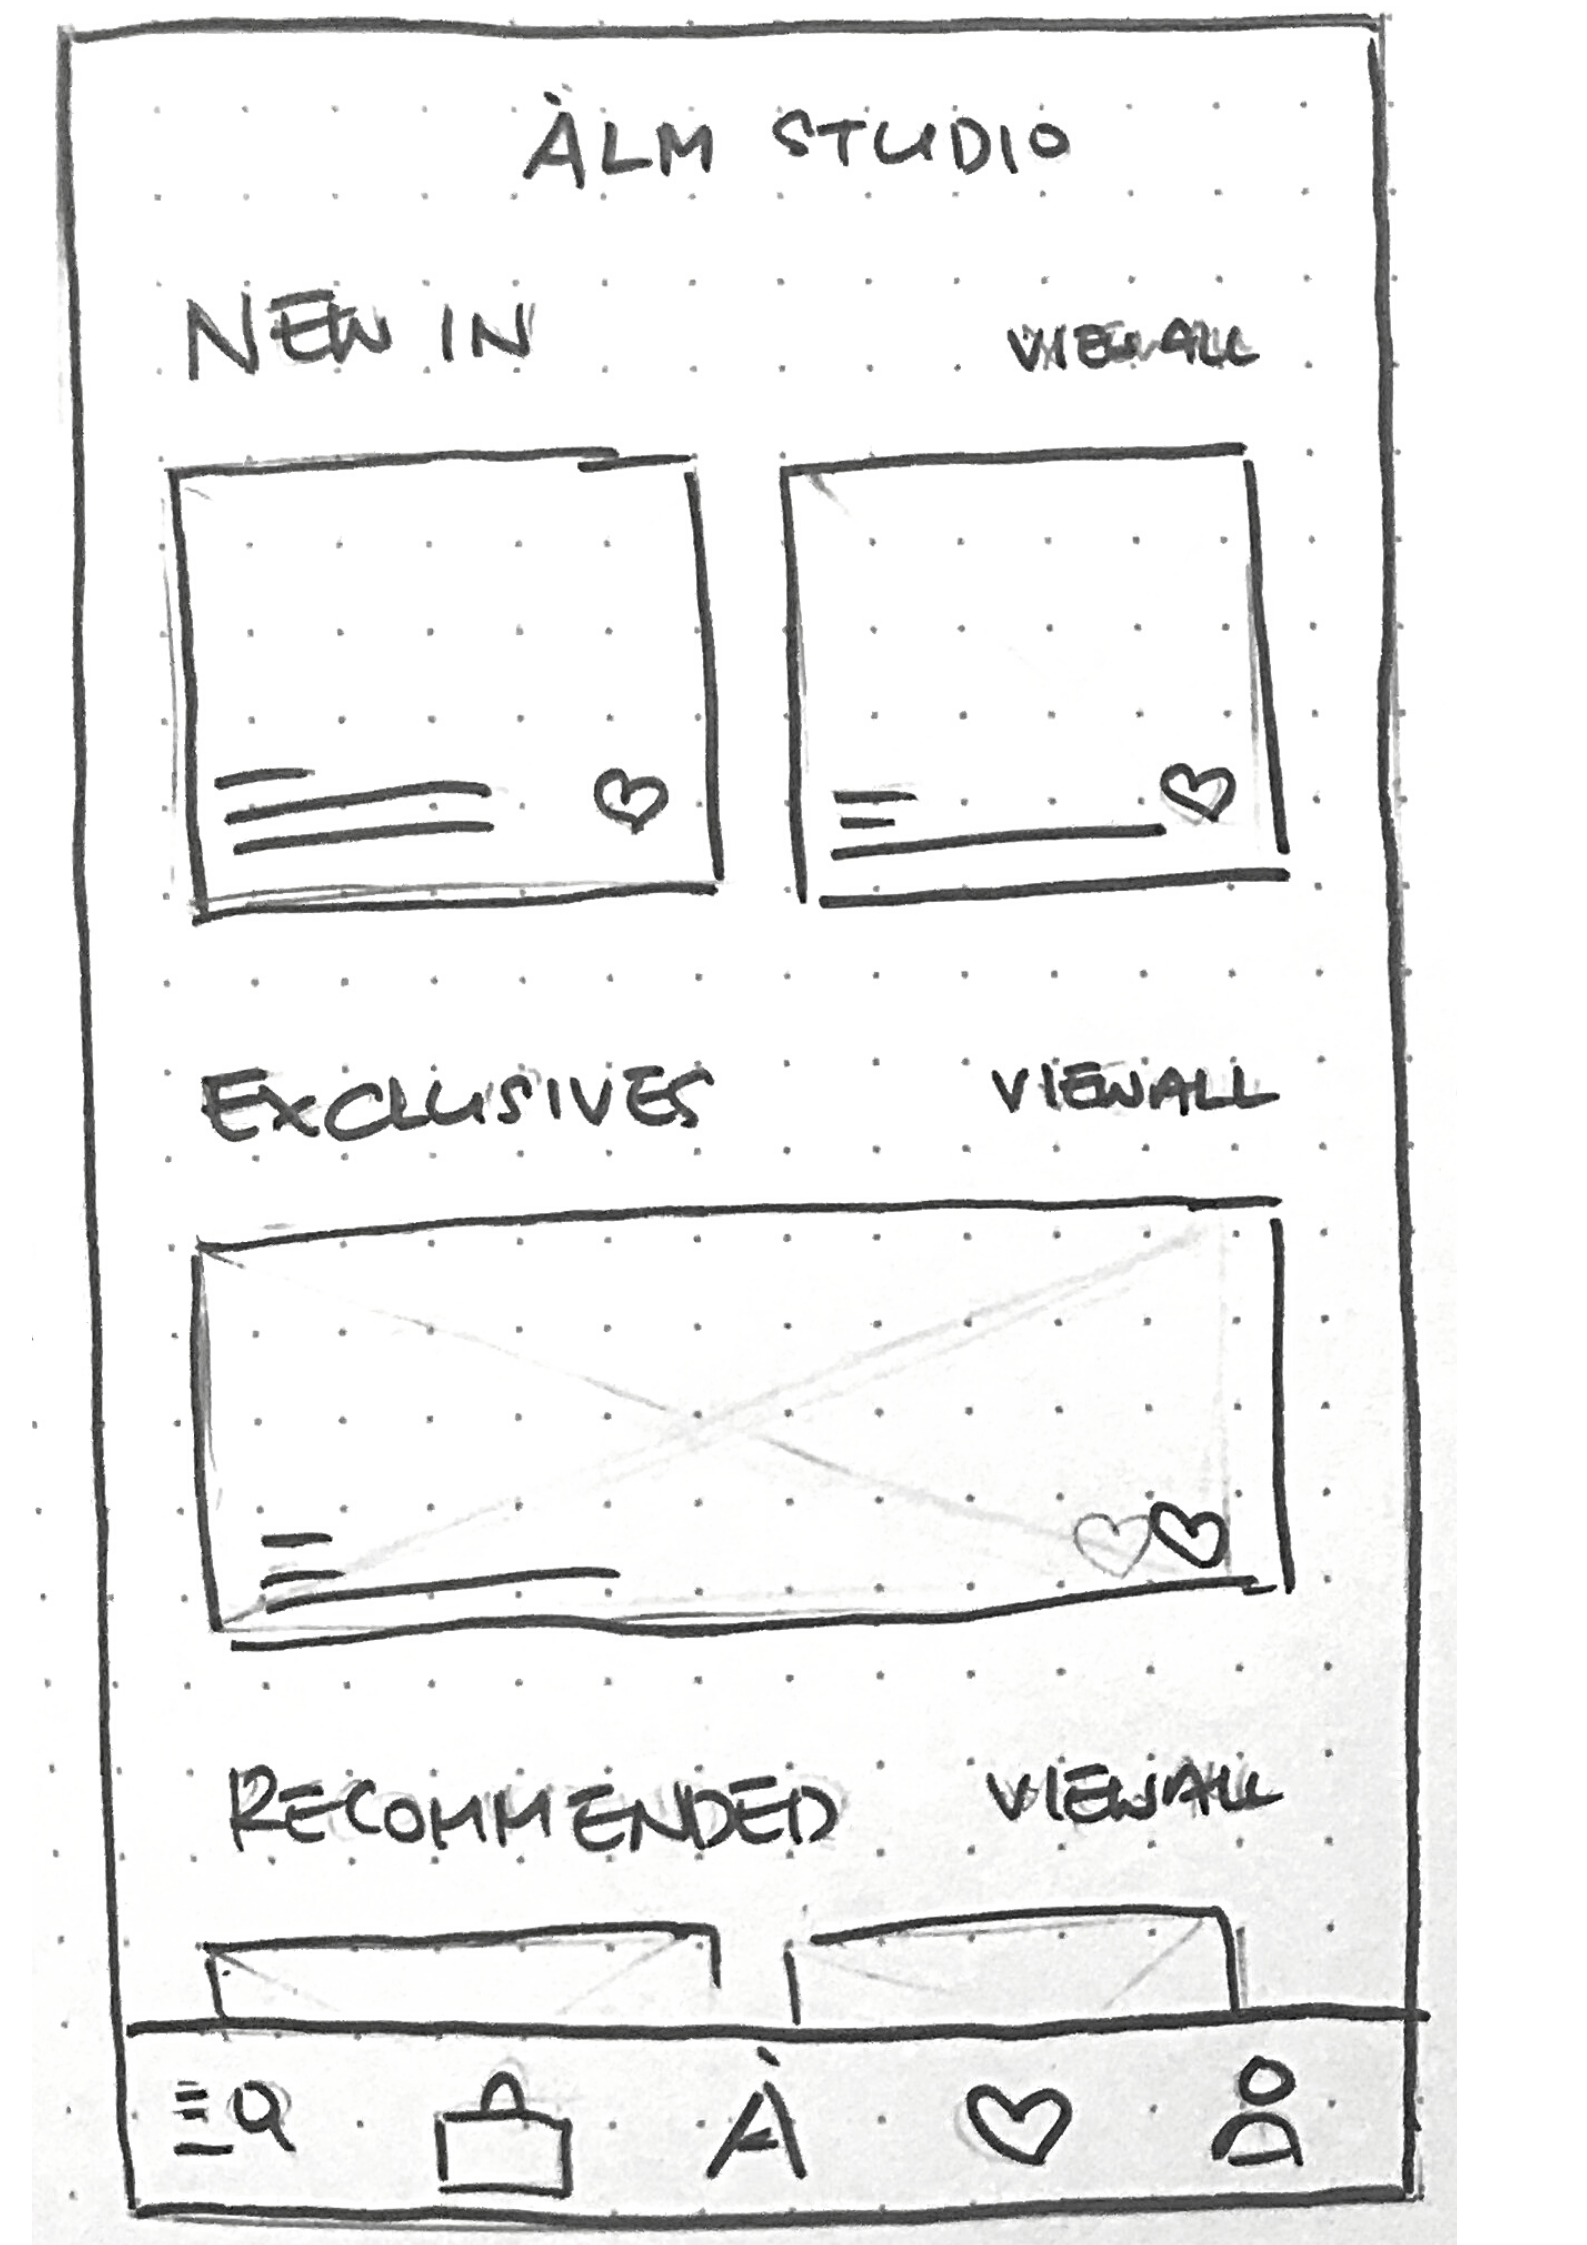 ÀLM STUDIO
NEW IN VIEW ALL
EXCLUSIVES VIEW ALL
RECOMMENDED VIEW ALL
À